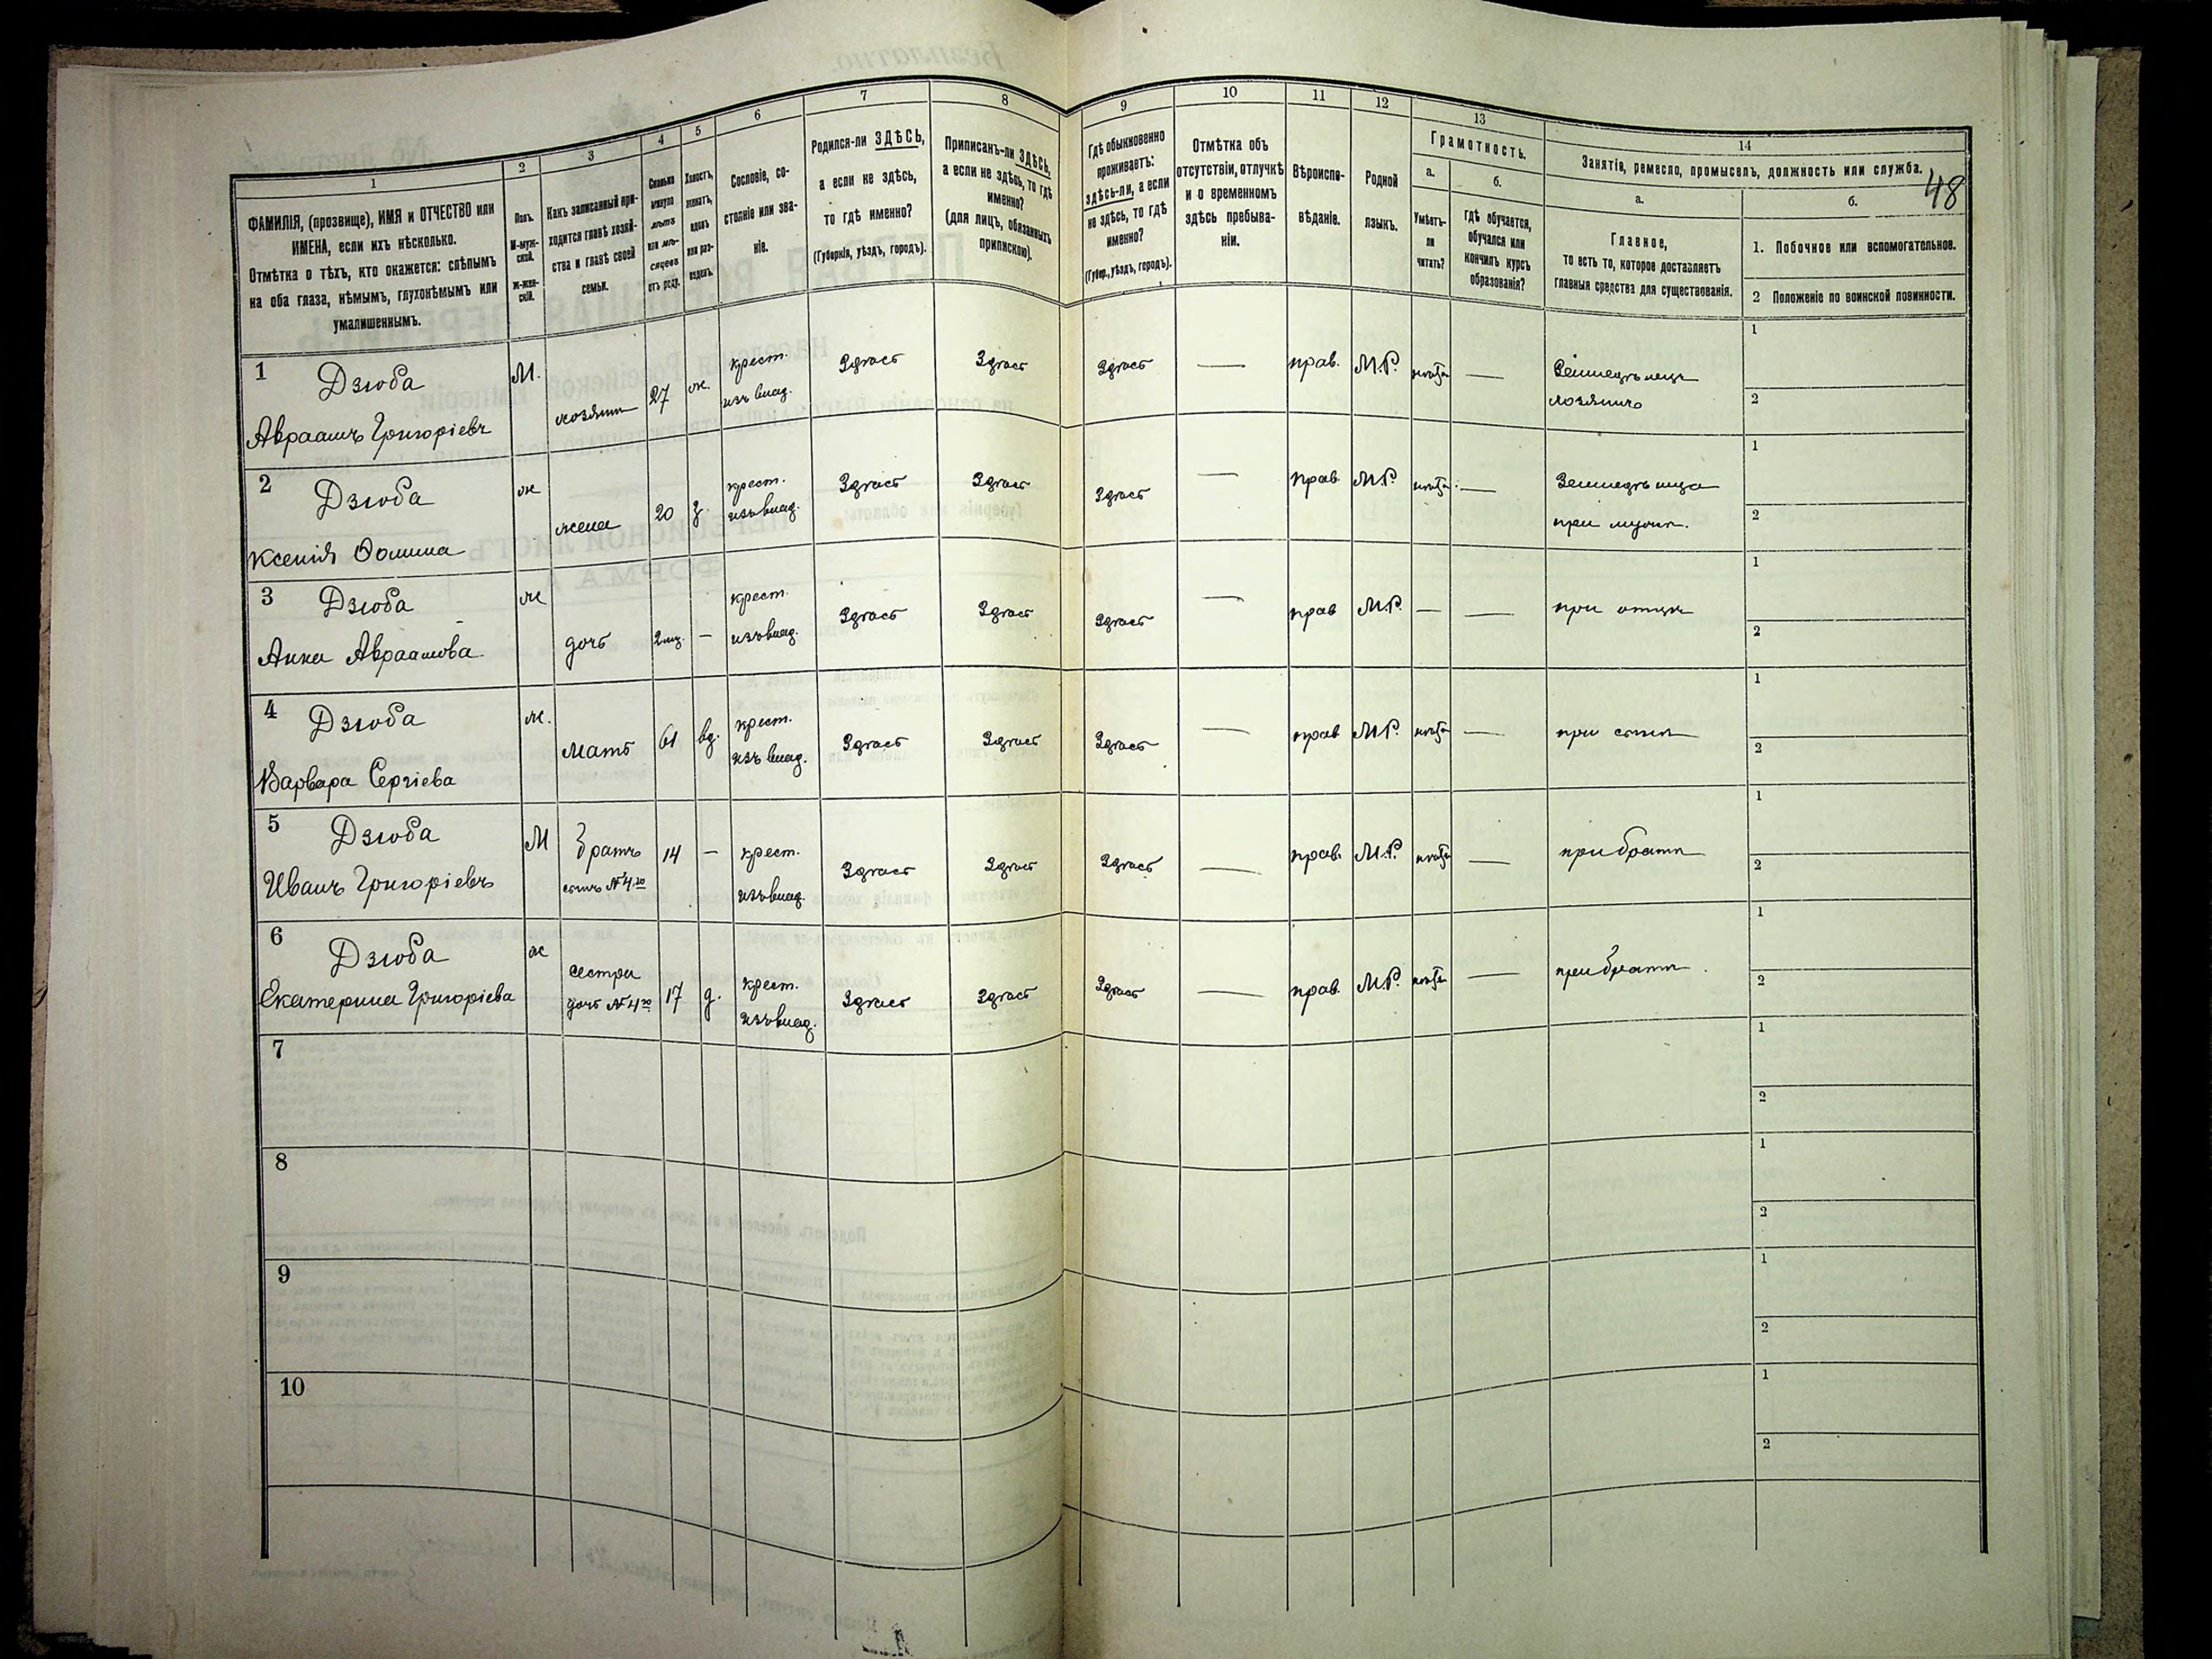 48
1
2
3
4
5
6
7
8
9
10
11
12
13
14
ФАМИЛІЯ, (прозвище), ИМЯ и ОТЧЕСТВО или
ИМЕНА, если ихъ нѣсколько.
Отмѣтка о тѣхъ, кто окажется: слѣпымъ
на оба глаза, нѣмымъ, глухонѣмымъ или
умалишеннымъ.
Полъ.
М-муж-
ской.
Ж-жен-
скій.
Какъ записанный при-
ходится главѣ хозяй-
ства и главѣ своей
семьи.
Сколько
минуло
лѣтъ
или мѣ-
сяцевъ
отъ роду.
Холостъ,
женатъ,
вдовъ
или раз-
веденъ.
Сословіе, со-
стояніе или зва-
ніе.
Родился-ли ЗДѢСЬ,
а если не здѣсь,
то гдѣ именно?
(Губернія, уѣздъ, городъ).
Приписанъ-ли ЗДѢСЬ,
а если не здѣсь, то гдѣ
именно?
(для лицъ, обязанныхъ
припискою).
Гдѣ обыкновенно
проживаетъ:
здѣсь-ли, а если
не здѣсь, то гдѣ
именно?
(Губер., уѣздъ, городъ).
Отмѣтка объ
отсутствіи, отлучкѣ
и о временномъ
здѣсь пребыва-
ніи.
Вѣроиспо-
вѣданіе.
Родной
языкъ.
Грамотность.
а.
Умѣетъ-
ли
читать?
б.
гдѣ обучается,
обучался или
кончилъ курсъ
образованія?
Занятіе, ремесло, промыселъ, должность или служба.
а.
Главное,
то есть то, которое доставляетъ
главныя средства для существованія.
б.
1. Побочное или вспомогательное.
2 Положеніе по воинской повинности.
1 Дзюба
Авраамъ Григоріевъ
М.
хозяин
27
ж.
крест.
изъ влад.
Здѣсь
Здѣсь
Здѣсь
—
прав.
М.Р.
нѣтъ
—
Земледѣлецъ
хозяинъ
1
2
2 Дзюба
Ксенія Фомина
ж
жена
20
з.
крест.
изъ влад.
Здѣсь
Здѣсь
Здѣсь
—
прав.
М.Р.
нѣтъ
—
Земледѣлица
при мужѣ.
1
2
3 Дзюба
Анна Авраамова
ж
дочь
2 мц.
—
крест.
изъ влад.
Здѣсь
Здѣсь
Здѣсь
—
прав
М.Р.
—
—
при отцѣ
1
2
4 Дзюба
Варвара Сергіева
ж.
мать
61
вд.
крест.
изъ влад.
Здѣсь
Здѣсь
Здѣсь
—
прав
М.Р.
нѣтъ
—
при сынѣ
1
2
5 Дзюба
Иванъ Григоріевъ
М
братъ
сынъ № 4го
14
—
крест.
изъ влад.
Здѣсь
Здѣсь
Здѣсь
—
прав.
М.Р.
нѣтъ
—
при братѣ
1
2
6 Дзюба
Екатерина Григоріева
ж
сестра
дочь № 4го
17
д.
крест.
изъ влад.
Здѣсь
Здѣсь
Здѣсь
—
прав.
М.Р.
нѣтъ
—
при братѣ.
1
2
7
1
2
8
1
2
9
1
2
10
1
2